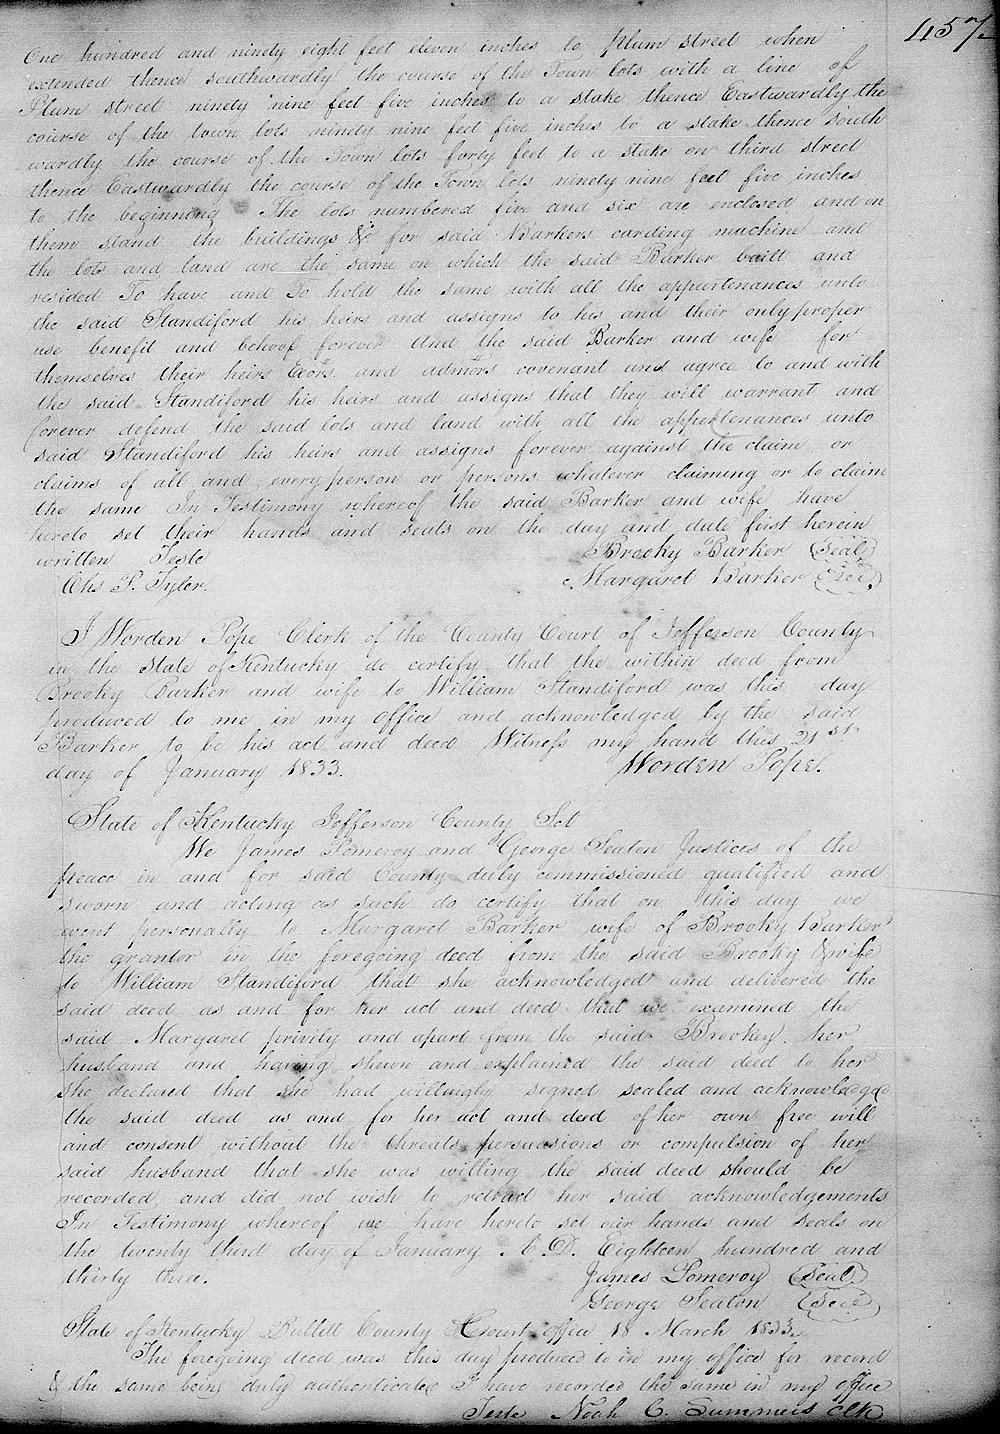 457
One hundred and ninety eight feet eleven inches to Plum street when
extended thence southwardly the course of the Town lots with a line of
Plum street ninety nine feet five inches to a stake thence Eastwardly the
course of the town lots ninety nine feet five inches to a stake thence south
wardly the course of the Town lots forty feet to a stake on third street
thence Eastwardly the course of the Town lots ninety nine feet five inches
to the beginning The lots numbered five and six are enclosed and on
them stand the buildings &c for said Barkers carding machine and
the lots and land are the same on which the said Barker built and
resided To have and To hold the same with all the appurtenances unto
the said Standiford his heirs and assigns to his and their only proper
use benefit and behoof forever And the said Barker and wife for
themselves their heirs Exors. and admors covenant and agree to and with
the said Standiford his heirs and assigns that they will warrant and
forever defend the said lots and land with all the appertenances unto
said Standiford his heirs and assigns forever against the claim or
claims of all and every person or persons whatever claiming or to claim
the same In Testimony whereof the said Barker and wife have
hereto set their hands and seals on the day and date first herein
written Teste Brooky Barker (Seal)
Chs P. Tyler. Margaret Barker (Seal)
I Worden Pope Clerk of the County Court of Jefferson County
in the State of Kentucky do certify that the within deed from
Brooky Barker and wife to William Standiford was this day
produced to me in my office and acknowledged by the said
Barker to be his act and deed Witness my hand this 21st
day of January 1833. Worden Pope.
State of Kentucky Jefferson County Sct
We James Pomeroy and George Seaton Justices of the
peace in and for said County duly commissioned qualified and
sworn and acting as such do certify that on this day we
went personally to Margaret Barker wife of Brooky Barker
the grantor in the foregoing deed from the said Brooky & wife
to William Standiford that she acknowledged and delivered the
said deed as and for her act and deed that we examined the
said Margaret privily and apart from the said Brookey her
husband and having shewn and explained the said deed to her
she declared that she had willingly signed sealed and acknowledged
the said deed as and for her act and deed of her own free will
and consent without the threats persuasions or compulsion of her
said husband that she was willing the said deed should be
recorded and did not wish to retract her said acknowledgements
In Testimony whereof we have hereto set our hands and seals on
the twenty third day of January A.D. Eighteen hundred and
thirty three. James Pomeroy (Seal)
George Seaton (Seal)
State of Kentucky Bullitt County Court office 18 March 1833.
The foregoing deed was this day produced to in my office for record
& the same being duly authenticated I have recorded the same in my office
Teste Noah C. Summers Clk